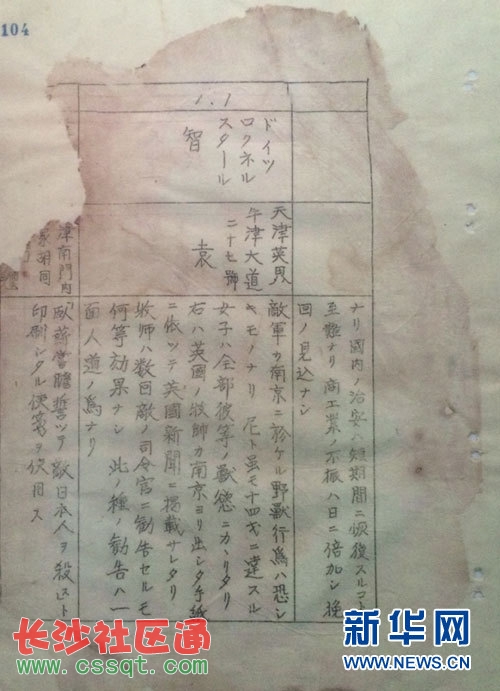 104
1.1
ドイツ
ロクネル
スタール
智
天津英界
牛津大道
二十七號
袁
津南門内
家胡同
ナリ國内ノ治安ハ短期間ニ恢復スルコト
至難ナリ商工業ノ不振ハ日ニ倍加シ挽
回ノ見込ナシ
敵軍カ南京ニ於ケル野獸行為ハ恐シ
キモノナリ 尼ト虽モ十四才ニ達スル
女子ハ全部彼等ノ獸慾ニカヽリタリ
右ハ英國ノ牧師カ南京ヨリ出シタ手紙
ニ依ツテ英國新聞ニ掲載サレタリ
牧师ハ数回敵ノ司令官ニ勧告セルモ
何等効果ナシ 此ノ種ノ勧告ハ一
面人道ノ為ナリ
「臥薪嘗膽誓ツテ敵日本人ヲ殺ス」ト
印刷シタル便箋ヲ使用ス
长沙社区通
www.cssqt.com
新华网
WWW.NEWS.CN